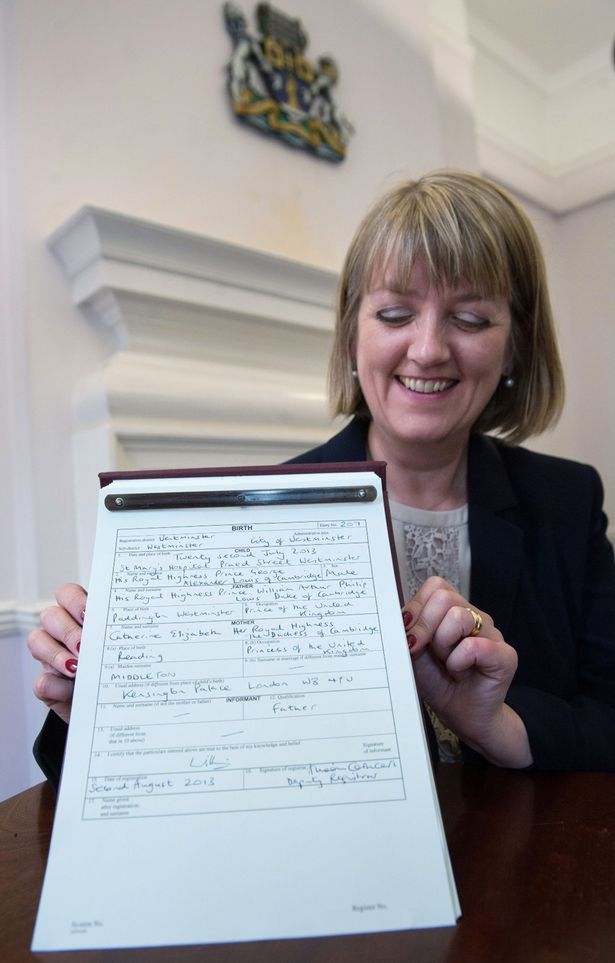 BIRTH
Entry No. 207
Registration district Westminster
Administrative area
Sub-district Westminster City of Westminster
CHILD
1. Date and place of birth Twenty second July 2013
St Mary's Hospital Praed Street Westminster
2. Name and surname His Royal Highness Prince George
Alexander Louis of Cambridge
3. Sex Male
FATHER
4. Name and surname
His Royal Highness Prince William Arthur Philip
Louis Duke of Cambridge
5. Place of birth
Paddington Westminster
6. Occupation
Prince of the United
Kingdom
MOTHER
7. Name and surname
Catherine Elizabeth Her Royal Highness
The Duchess of Cambridge
8.(a) Place of birth
Reading
8.(b) Occupation
Princess of the United
Kingdom
9.(a) Maiden surname
MIDDLETON
9.(b) Surname at marriage if different from maiden surname
10. Usual address (if different from place of child's birth)
Kensington Palace London W8 4PU
INFORMANT
11. Name and surname (if not the mother or father)
12. Qualification
Father
13. Usual address
(if different from
that in 10 above)
14. I certify that the particulars entered above are true to the best of my knowledge and belief
Signature
of informant
15. Date of registration
Second August 2013
16. Signature of registrar
Deputy Registrar
17. Name given
after registration,
and surname
System No.
Register No.